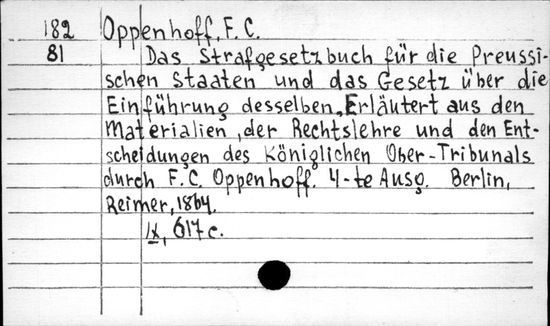 182 Oppenhoff, F. C.
81 Das Strafgesetzbuch für die Preussi-
schen Staaten und das Gesetz über die
Einführung desselben, Erläutert aus den
Materialien, der Rechtslehre und den Ent-
scheidungen des Königlichen Ober-Tribunals
durch F. C. Oppenhoff. 4-te Ausg. Berlin,
Reimer, 1864.
IX, 617 c.